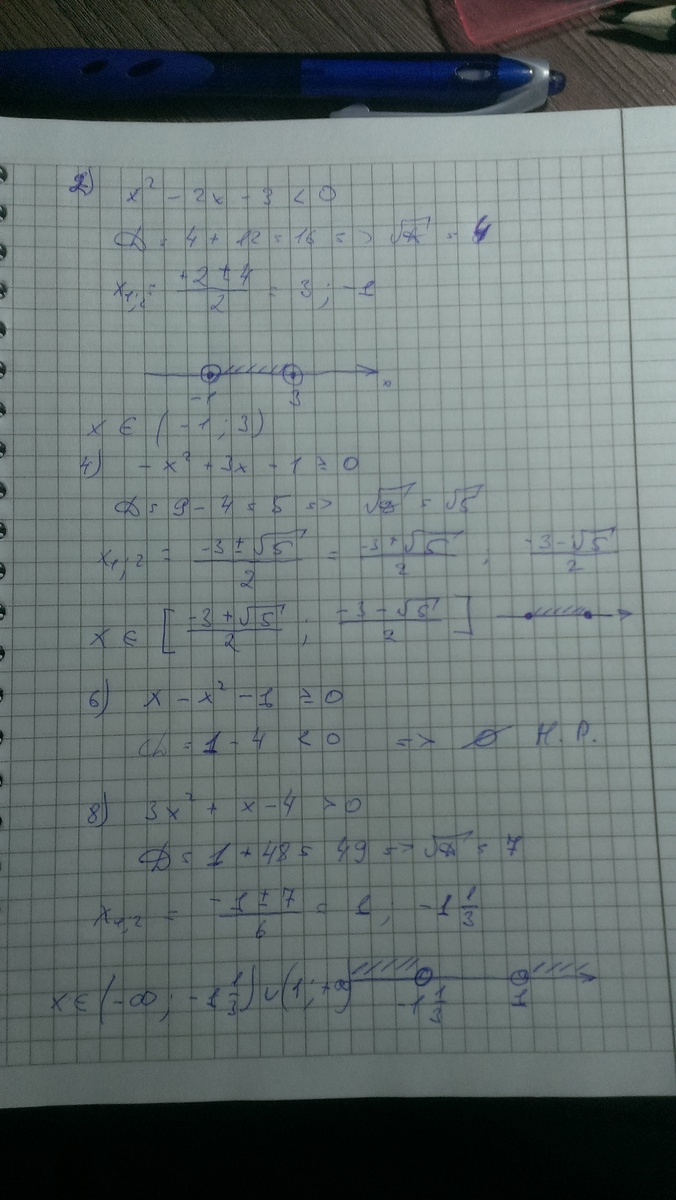 2) x² - 2x - 3 < 0
D = 4 + 12 = 16 => √D = 4
x₁;₂ = (+2 ± 4)/2 = 3 ; -1
-1 3 x
x ∈ (-1 ; 3)
4) - x² + 3x - 1 ≥ 0
D = 9 - 4 = 5 => √D = √5
x₁,₂ = (-3 ± √5)/2 = (-3 + √5)/2 ; (-3 - √5)/2
x ∈ [(-3 + √5)/2 ; (-3 - √5)/2]
6) x - x² - 1 ≥ 0
D = 1 - 4 < 0 => ∅ Н.Р.
8) 3x² + x - 4 > 0
D = 1 + 48 = 49 => √D = 7
x₁,₂ = (-1 ± 7)/6 = 1 ; -1 1/3
x ∈ (-∞ ; -1 1/3) ∪ (1 ; +∞) -1 1/3 1